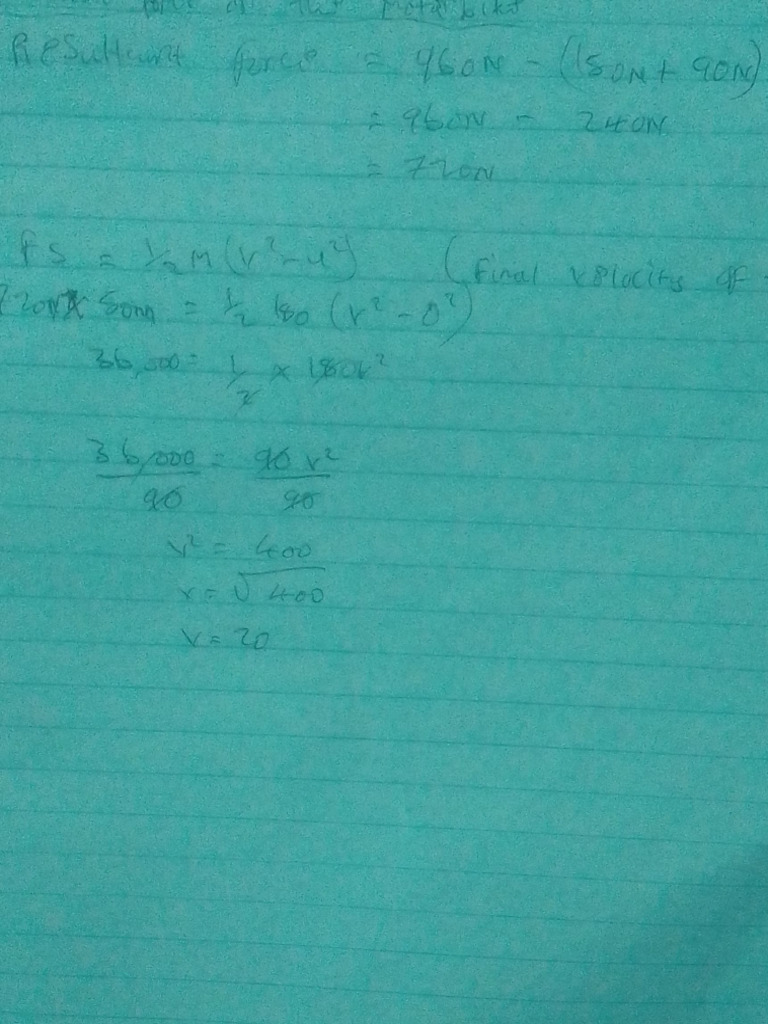 force of the Motorbike
Resultant force = 960N - (150N + 90N)
= 960N - 240N
= 720N
FS = 1/2 M (v² - u²) (final velocity of
720N × 50m = 1/2 180 (v² - 0²)
36,000 = 1/2 × 180v²
36,000/90 = 90v²/90
v² = 400
v = √400
v = 20